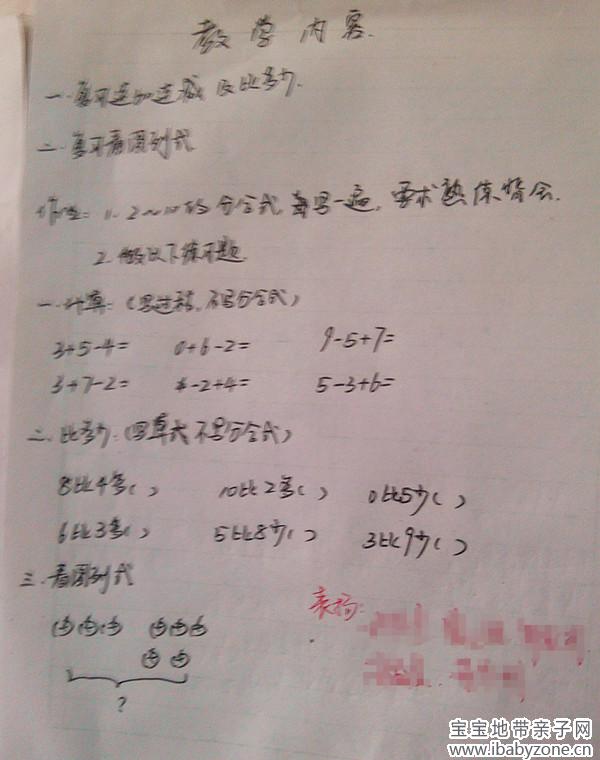 教学内容.
一.复习连加连减及比多少.
二.复习看图列式
作业: 1. 2~10的分合式,每写一遍,要求熟练背会.
2.做以下练习题.
一.计算:(写过程,不写分合式)
3+5-4= 0+6-2= 9-5+7=
3+7-2= -2+4= 5-3+6=
二.比多少:(写算式不写分合式)
8比4多( ) 10比2多( ) 0比5少( )
6比3多( ) 5比8少( ) 3比9少( )
三.看图列式
?
表扬:
宝宝地带亲子网
www.ibabyzone.cn